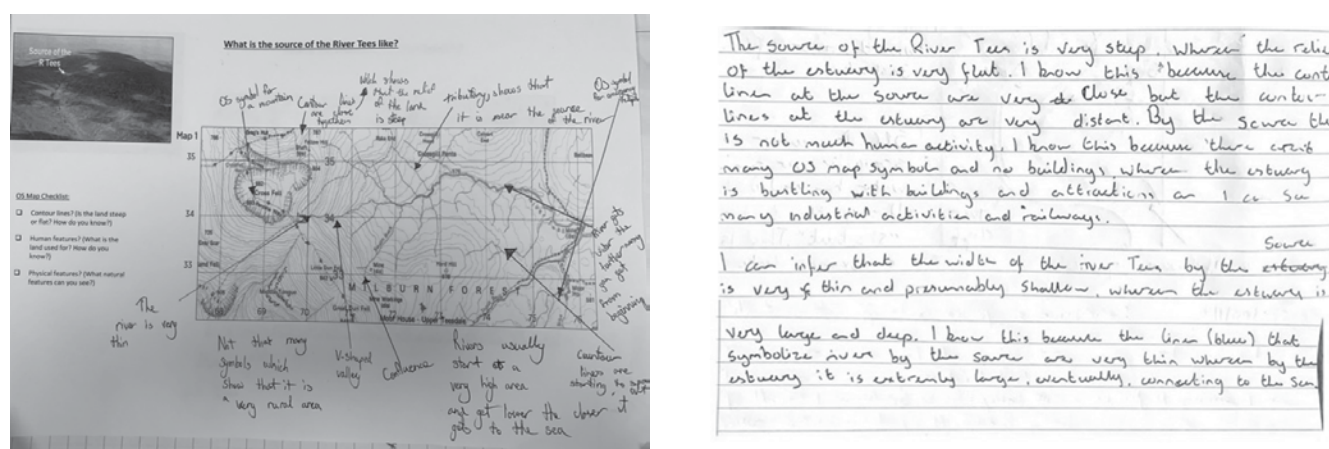 Source of the
R Tees
What is the source of the River Tees like?
OS symbol for
a mountain
Contour lines
are close
together
which shows
that the relief
of the land
is steep
tributary shows that
it is near the source
of the river
OS symbol
Map 1
35
34
33
35
34
Cross Fell
MILBURN FOREST
Moor House - Upper Teesdale
70
OS Map Checklist:
Contour lines? (Is the land steep
or flat? How do you know?)
Human features? (What is the
land used for? How do you
know?)
Physical features? (What natural
features can you see?)
The
river is very
thin
Not that many
symbols which
show that it is
a very rural area
V-shaped
valley
Confluence
Rivers usually
start at a
very high area
and get lower the closer it
gets to the sea
River gets
wider the
further away
you get
from
beginning
Countour
lines are
starting to
The source of the River Tees is very steep. Wheren the relie
of the estuary is very flat. I know this because the cont
lines at the source are very close but the conter
lines at the estuary are very distant. By the source the
is not much human activity. I know this because there
many OS map symbols and no buildings, wheren the estuary
is bustling with buildings and attractions an I ca see
many industrial activities and railways.
source
I can infer that the width of the river Tees by the estuary
is very thin and presumably shallow, wheren the estuary is
very large and deep. I know this because the lines (blue) that
symbolize rivers by the source are very thin wheren by the
estuary it is extremly large, eventually, connecting to the sea.